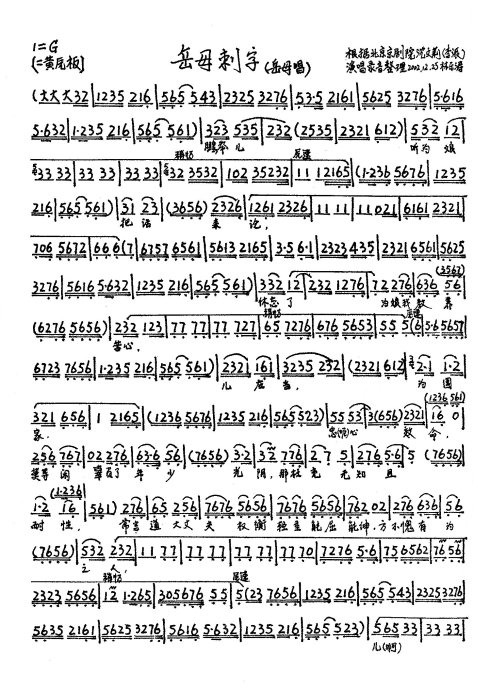 1=G
[二黄原板]
岳母刺字(岳母唱)
演唱录音整理2002.12.25
(大大大32|1235 216|565 543|2325 3276|53·5 2161|5625 3276|5·616
5·632|1·235 216|565 561)|323 535|232 (2535|2321 612)|532 12|
鹏举儿 听为娘
稍忆 还原
33 33|33 33|33 33|33 33|32 3532|102 35232|11 12165|(1·236 5676|1235
216|565 561)|31 23|(3656) 2326|1261 2326|11 11|11021|6161 2321|
把话来论,
706 5672|66 6(7|6757 6561|5613 2165|3·5 6·1|2323 435|2321 6561|5625
(3567)
3276|5616 5·632|1235 216|565 561)|332 12|232 1276|72 276|636 56
休忘了 为娘我教养
(6276 5656)|232 123|77 77|77 727|65 7276|676 5653|55 5(6·5·6 5657
苦心,
6723 7656|1·235 216|565 561)|2321 161|3235 232|(2321 612)|2·1 1·2
儿应当, 为国
(1236 561)
321 656|1 2165|(1236 5676|1235 216|565 523)|55 53|3(656) 2321|16 0
家, 忠心效命,
256 767|02 276|63·6 56|(7656) 3·2|32 776|2 7 5|276 5·6|5 (7656)
莫等闲 辜负了年少 光阴,那杜 无知且
(1·236)
1·2 16|561)|276|65 256|7676 5656|7676 5656|762 02|276 636|56
耐性, 常言道大丈夫权衡独立能屈能伸,方不愧有为
(7656)|532 232|11 77|77 77|77 77|77 77|77 70|7276 5·6|756562|76 56
之人,
稍忆 还原
2323 5656|12 1·265|305676 55|5(23 7656|1235 216|565 543|2325 3276
5635 2161|5625 3276|5616 5·632|1235 216|565 523)|565 33|33 33|
儿(啊)